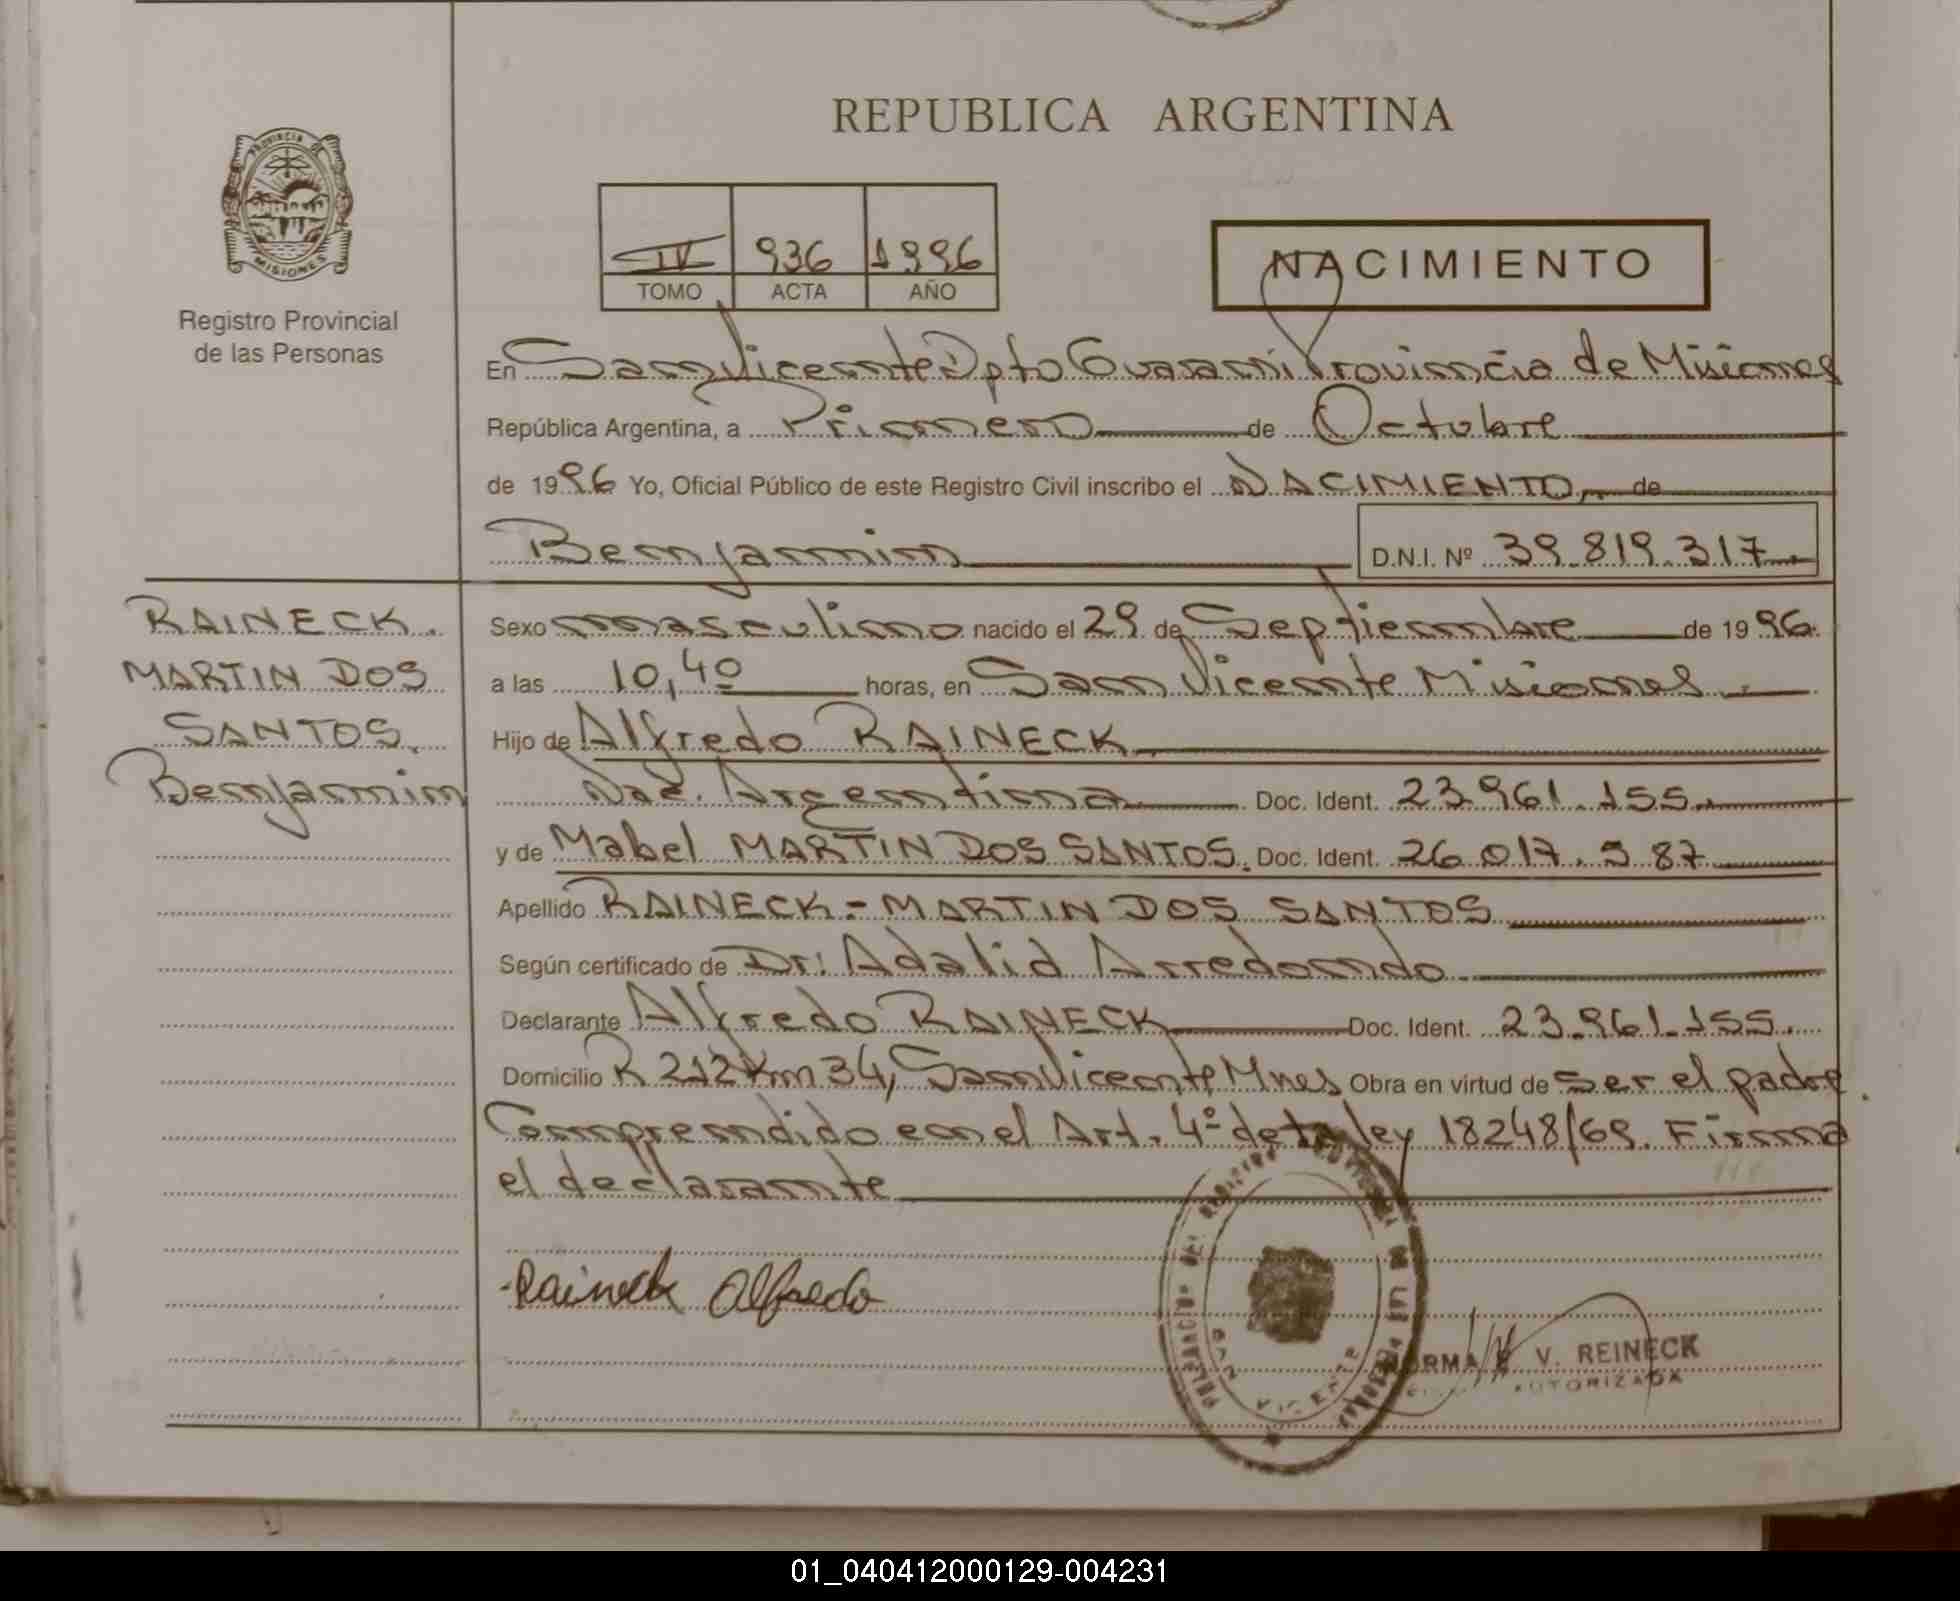 REPUBLICA ARGENTINA
PROVINCIA DE MISIONES
Registro Provincial
de las Personas
IV 936 1996
TOMO ACTA AÑO
NACIMIENTO
En San Vicente Dpto Guaraní Provincia de Misiones
República Argentina, a Primero de Octubre
de 1996 Yo, Oficial Público de este Registro Civil inscribo el NACIMIENTO, de
Benjamin D.N.I. Nº 39.819.317.
RAINECK.
MARTIN DOS
SANTOS.
Benjamin
Sexo masculino nacido el 29 de Septiembre de 1996.
a las 10,40 horas, en San Vicente Misiones.
Hijo de Alfredo RAINECK.
Nac. Argentina Doc. Ident. 23.961.155.
y de Mabel MARTIN DOS SANTOS. Doc. Ident. 26.017.987
Apellido RAINECK-MARTIN DOS SANTOS
Según certificado de Dr: Adalid Arredondo
Declarante Alfredo RAINECK Doc. Ident. 23.961.155.
Domicilio R 212 Km 34, San Vicente, Mnes Obra en virtud de ser el padre.
Comprendido en el Art. 4º de la ley 18248/69. Firma
el declarante
Raineck Alfredo
SAN VICENTE
NORMA V. REINECK
AUTORIZADA
01_040412000129-004231